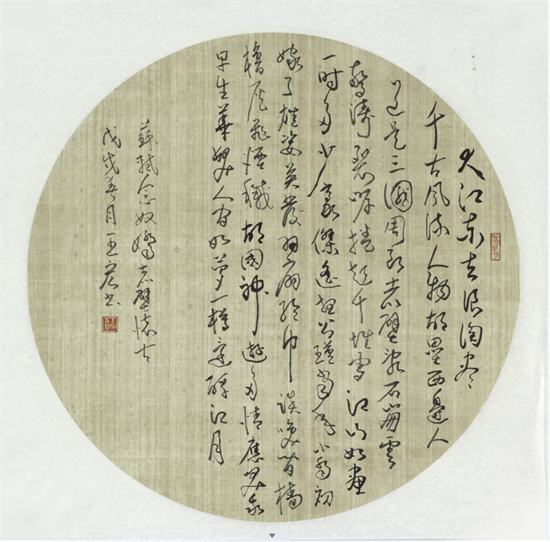 大江东去浪淘尽
千古风流人物故垒西边人
道是三國周郎赤壁乱石崩雲
惊涛裂岸捲起千堆雪江山如画
一时多少豪傑遥想公瑾当年小乔初
嫁了雄姿英發羽扇纶巾谈笑间樯
櫓灰飛煙滅故國神遊多情應笑我
早生華髮人间如梦一樽还酹江月
蘇轼念奴嬌赤壁懷古
戊戌月王书